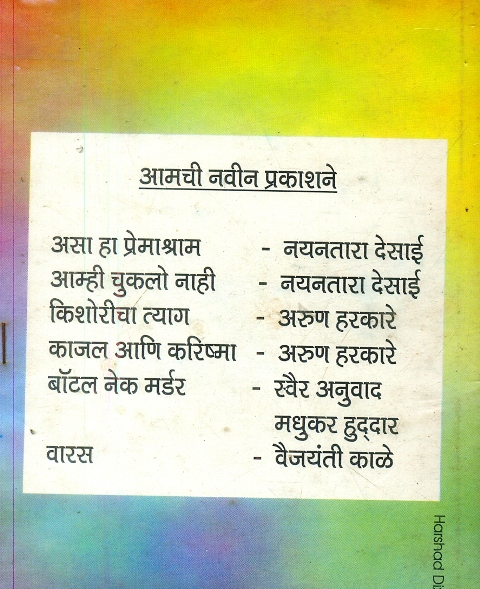 आमची नवीन प्रकाशने
असा हा प्रेमाश्राम - नयनतारा देसाई
आम्ही चुकलो नाही - नयनतारा देसाई
किशोरीचा त्याग - अरुण हरकारे
काजल आणि करिष्मा - अरुण हरकारे
बॉटल नेक मर्डर - स्वैर अनुवाद
मधुकर हुद्दार
वारस - वैजयंती काळे
Harshad